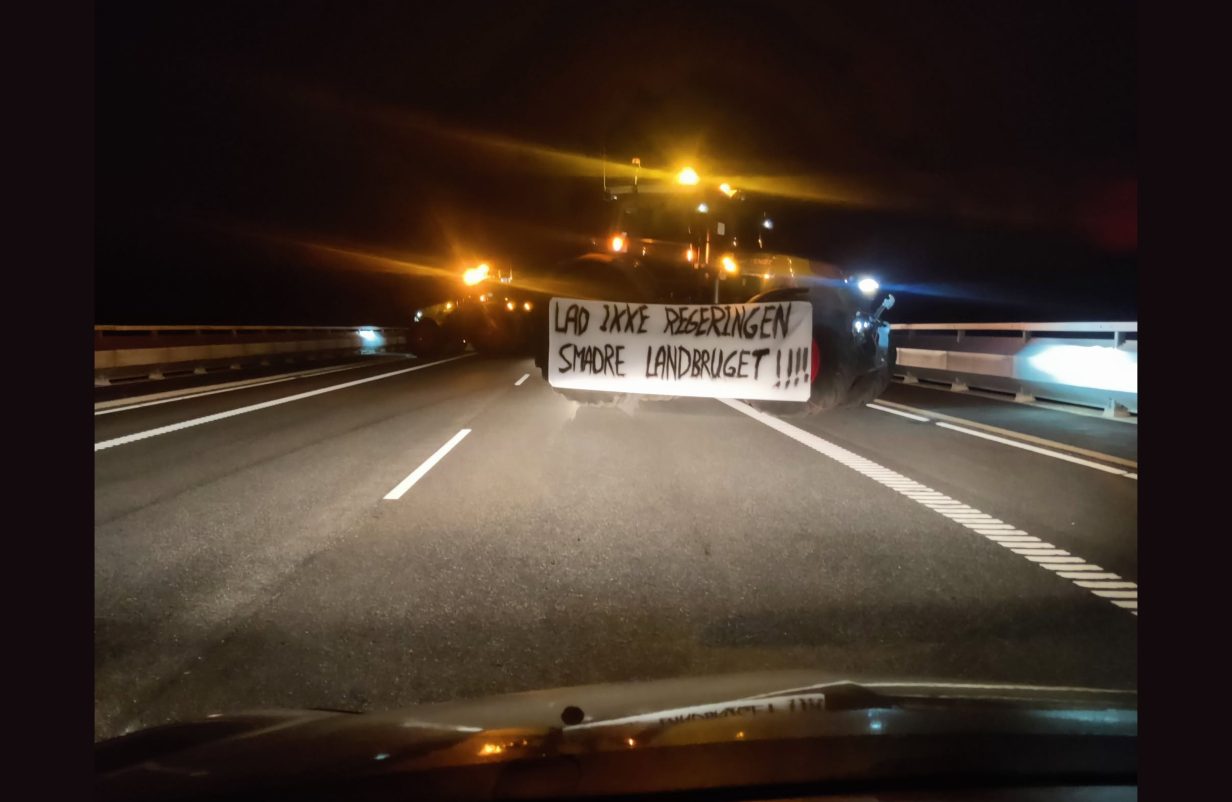 LAD IKKE REGERINGEN
SMADRE LANDBRUGET !!!!